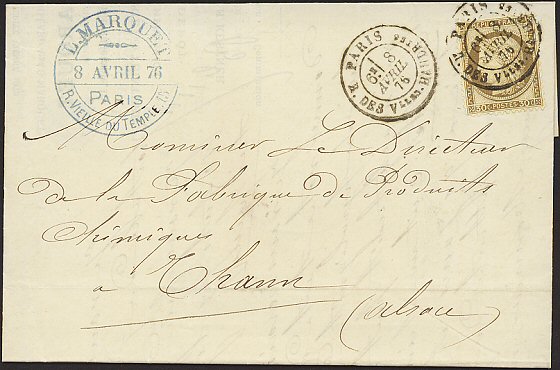 L. MARQUET
8 AVRIL 76
PARIS
R. VIEILLE DU TEMPLE
PARIS
6E
8
AVRIL
76
R. DES Vlles HAUDtes
PARIS
8
AVRIL
76
R. DES Vlles
30c POSTES 30c
Monsieur Le Directeur
de la Fabrique de Produits
chimiques
à Thann
(alsace)